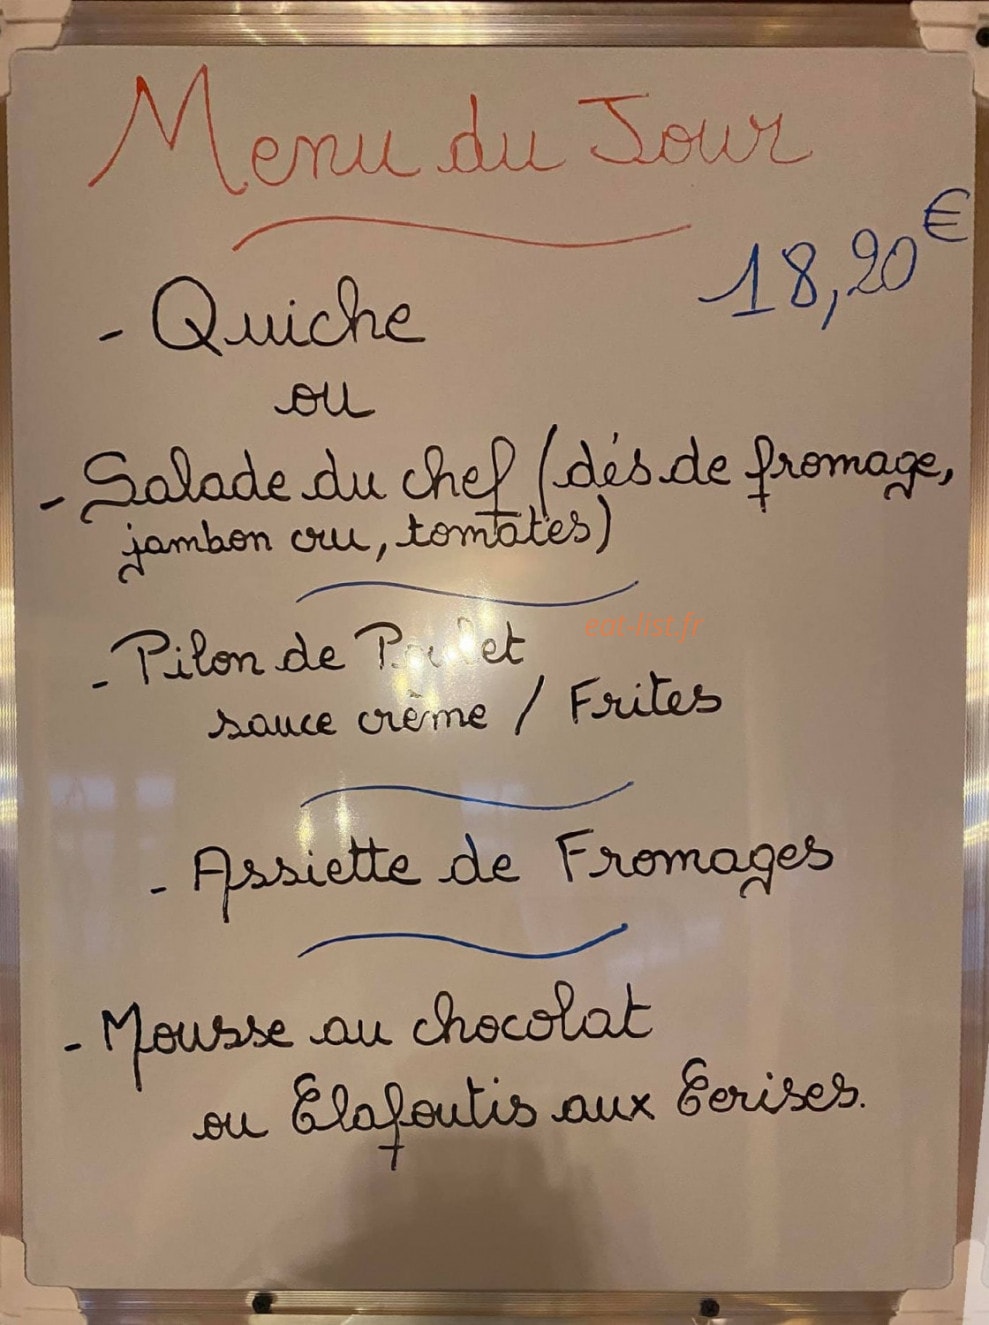 Menu du Jour
18,20€
- Quiche
ou
- Salade du chef (dés de fromage,
jambon cru, tomates)
eat-list.fr
- Pilon de Poulet
sauce crème / Frites
- Assiette de Fromages
- Mousse au chocolat
ou Clafoutis aux Cerises.